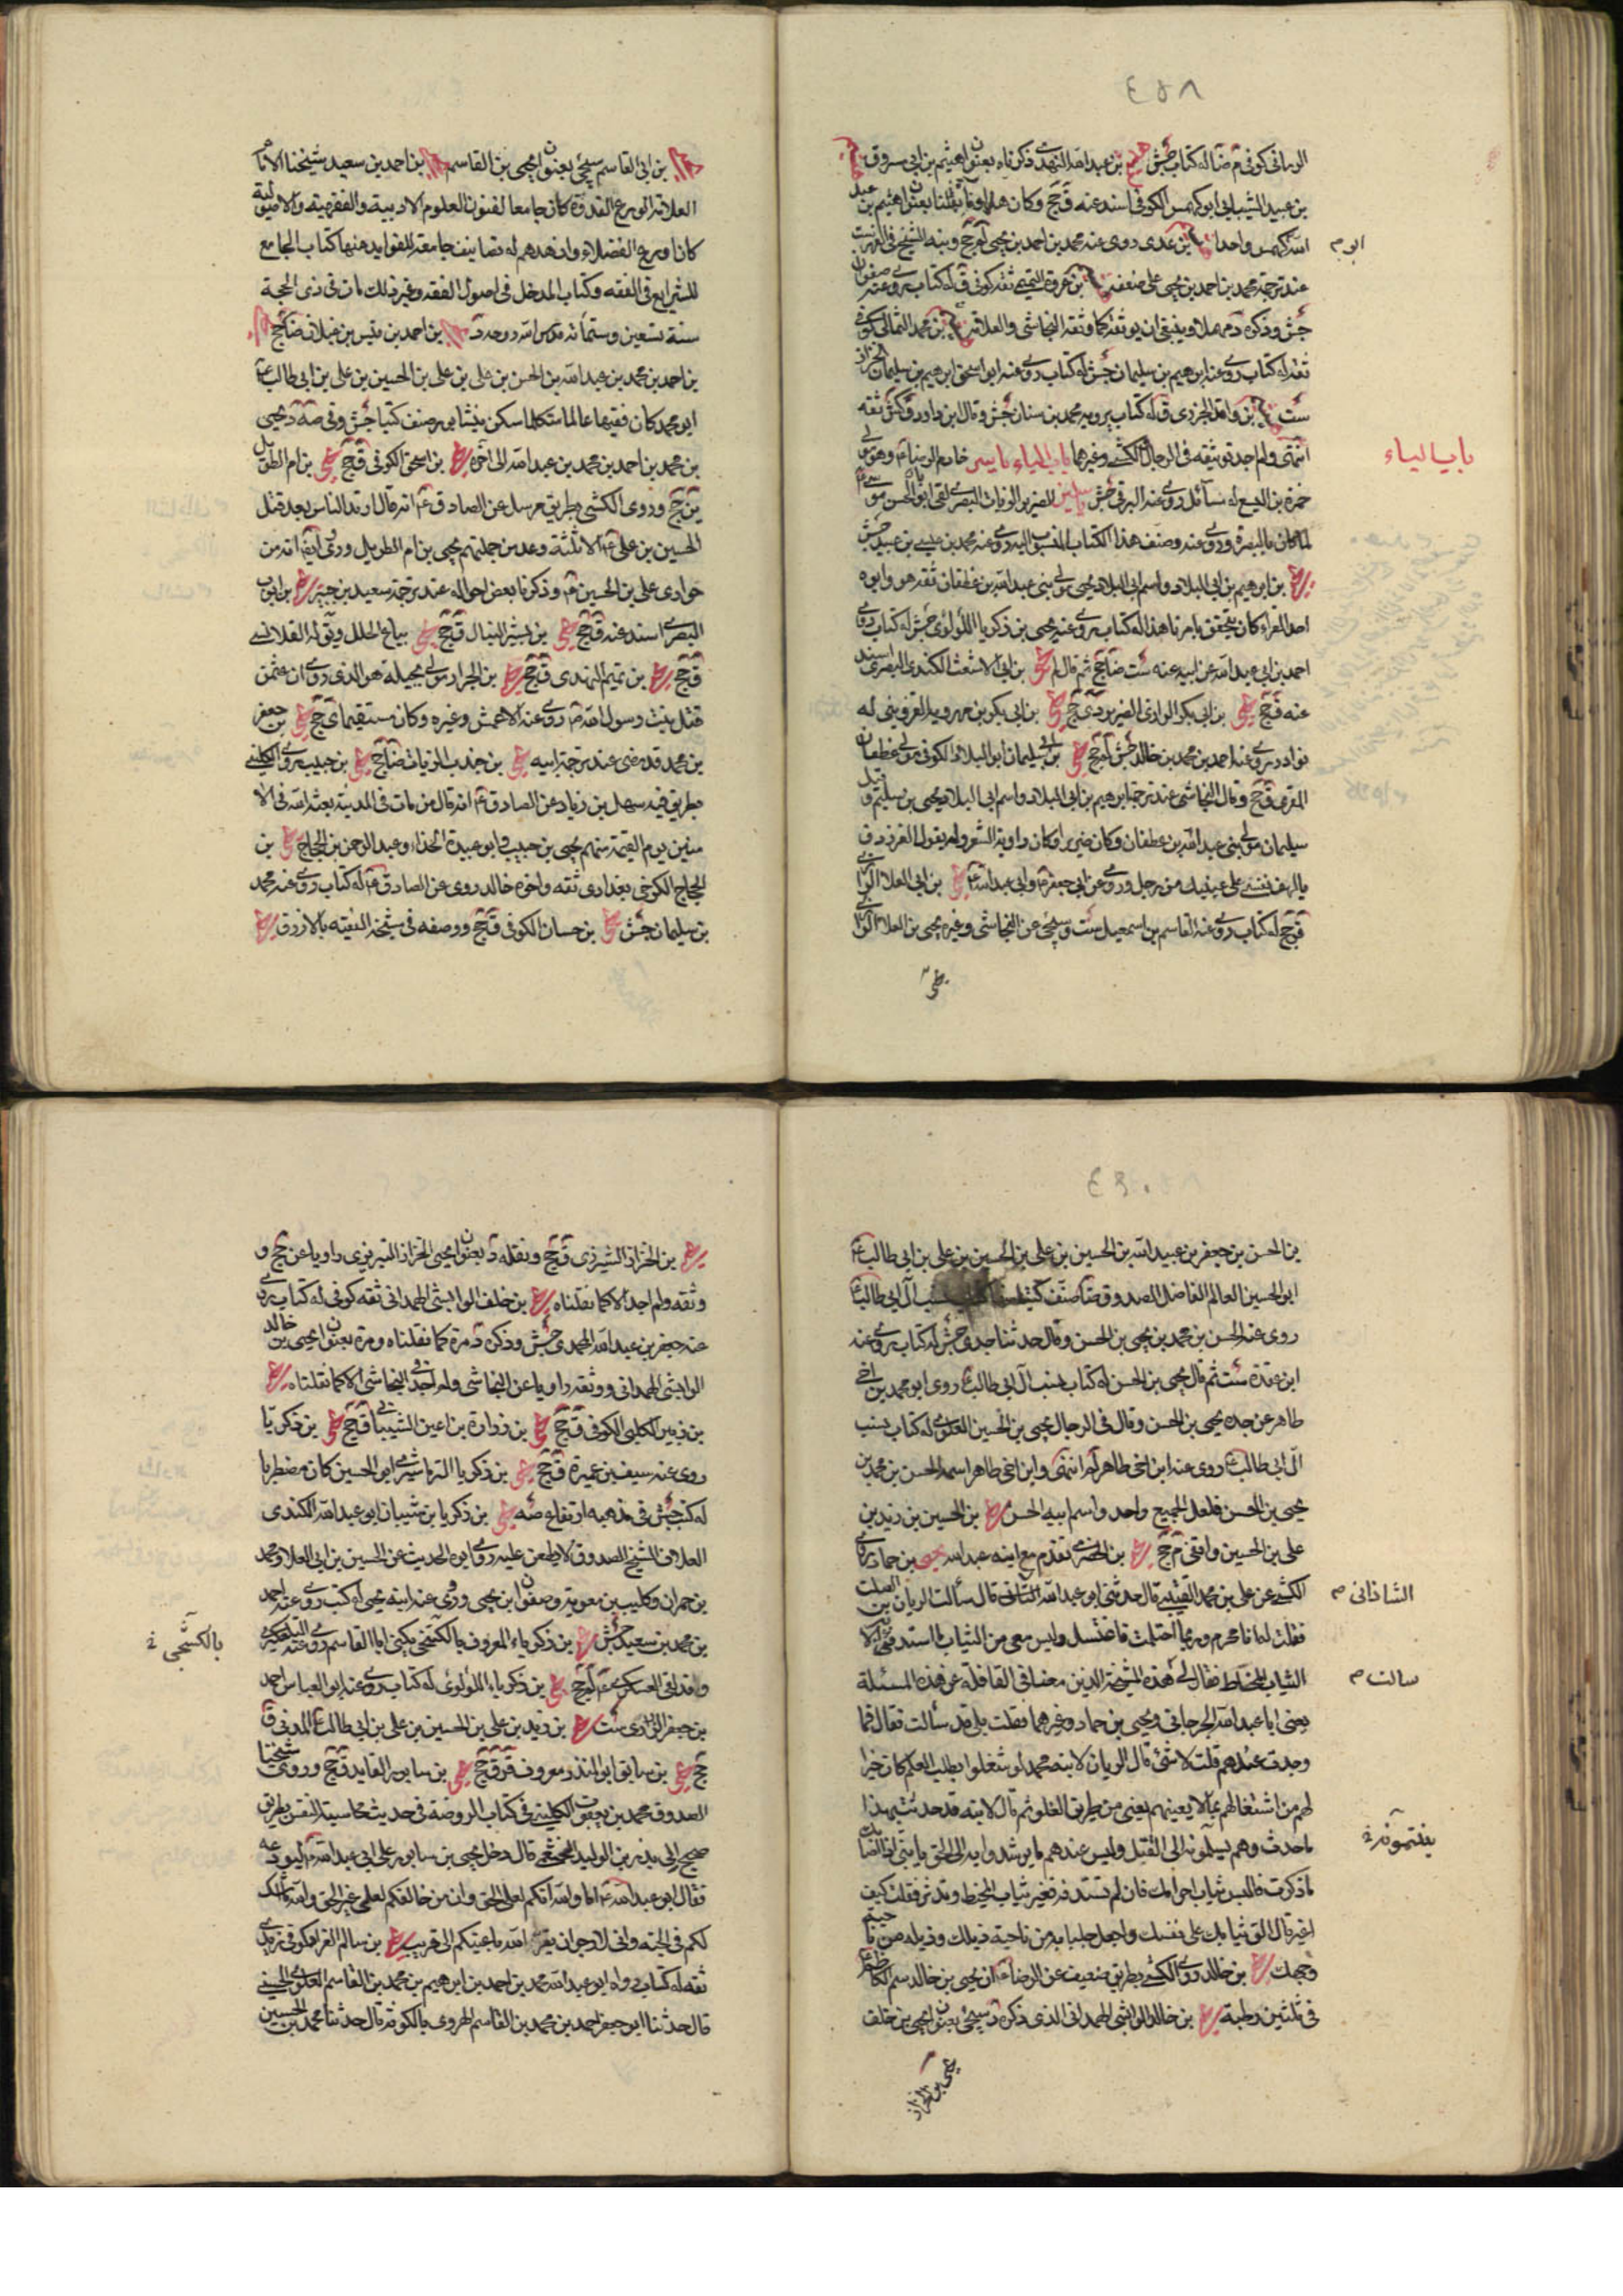 ٤٥٨
الرماني كوفي م ضا له كتاب جش هيثم بن عبد الله النهدي ذكرناه بعنوان هيثم بن ابي مسروق
بن عبيد الشيباني ابو كهمس الكوفي اسند عنه ق جج وكان هذا وما نقلنا بعنوان هيثم بن عبد
الله كهمس واحدا بن عدي روى عنه محمد بن احمد بن يحيى لم جج ونبه الشيخ في الفهرست
ابو م
عند ترجمة محمد بن احمد بن يحيى على ضعفه بن عروة التميمي ثقة كوفي ق له كتاب يروي عنه صفوان
جش وذكره د مهملا وينبغي ان يوثقه كما وثقه النجاشي والعلامة بن محمد الثمالي كوفي
ثقة له كتاب روى عنه ابرهيم بن سليمان جش له كتاب روى عنه ابو اسحق ابرهيم بن سليمان الخزاز
ست بن واقد الجزري ق له كتاب يرويه محمد بن سنان جش وقال ابن داود ق كش ثقه
انتهى ولم اجد توثيقه في الرجال الكشي وغيرهما باب الياء ياسر خادم الرضا م وهو مولى
باب الياء
حمزة بن اليسع له مسائل روى عنه البرقي جش ياسين الضرير الزيات البصري لقي ابا الحسن موسى م
لما كان بالبصرة وروى عنه وصنف هذا الكتاب المنسوب اليه روى عنه محمد بن عيسى بن عبيد جش
يحيى بن ابرهيم بن ابي البلاد واسم ابي البلاد يحيى مولى بني عبد الله بن غطفان ثقه هو وابوه
احد القراء كان يتحقق بامرنا هذا له كتاب يروي عنه يحيى بن زكريا اللؤلؤي جش له كتاب رواه
احمد بن ابي عبد الله عن ابيه عنه ست ضا جج ثم قال لم يحيى بن ابي الاشعث الكندي البصري اسند
عنه ق جج يحيى بن ابي بكر الرازي الضرير دي جج يحيى بن ابي بكر بن مهرويه القزويني له
نوادر روى عنه احمد بن محمد بن خالد جش لم جج يحيى بن ابي سليمان ابو البلاد الكوفي مولى غطفان
المقري ق جج وقال النجاشي عند ترجمة ابرهيم بن ابي البلاد واسم ابي البلاد يحيى بن سليم وقيل
سليمان مولى بني عبد الله بن غطفان وكان ضريرا وكان راوية الشعر وله يقول الفرزدق
يا لهف نفسي على عينيك من رجل وروى عن ابي جعفر م وابي عبد الله م يحيى بن ابي العلا الرازي
ق جج له كتاب روى عنه القاسم بن اسمعيل ست وسيجئ عن النجاشي وغيره يحيى بن العلا الرازي
يحيى
يحيى بن ابي القاسم سيجئ بعنوان يحيى بن القاسم يحيى بن احمد بن سعيد شيخنا الامام
العلامة الورع القدوة كان جامعا لفنون العلوم الادبية والفقهية والاصولية
كان اورع الفضلاء وازهدهم له تصانيف جامعة للفوايد منها كتاب الجامع
للشرايع في الفقه وكتاب المدخل في اصول الفقه وغير ذلك مات في ذي الحجة
سنة تسعين وستمائه قدس الله روحه د يحيى بن احمد بن قيس بن غيلان ضا جج يحيى
بن احمد بن محمد بن عبد الله بن الحسن بن علي بن علي بن الحسين بن علي بن ابي طالب م
ابو محمد كان فقيها عالما متكلما سكن نيشابور صنف كتبا جش وفي صه د يحيى
بن محمد بن احمد بن محمد بن عبد الله الى اخره يحيى بن اسحق الكوفي ق جج يحيى بن ام الطويل
ين جج وروى الكشي بطريق مرسل عن الصادق م انه قال ارتد الناس بعد قتل
الحسين بن علي م الا ثلثة وعد من جملتهم يحيى بن ام الطويل وروى ايضا انه من
حواري علي بن الحسين م وذكرنا بعض احواله عند ترجمة سعيد بن جبير يحيى بن ايوب
البصري اسند عنه ق جج يحيى بن بشير النبال ق جج يحيى بياع الحلل ويق له القلانسي
ق جج يحيى بن تميم النهدي ق جج يحيى بن الجرار مولى بجيله هو الذي روى ان عثمن
قتل بنت رسول الله م روى عنه الاعمش وغيره وكان مستقيما ي جج يحيى بن جعفر
بن محمد قد مضى عند ترجمة ابيه يحيى بن جندب الزيات ضا جج يحيى بن حبيب روى الكليني
بطريق فيه سهل بن زياد عن الصادق م انه قال من مات في المدينة بعثه الله في الا
منين يوم القيمة منهم يحيى بن حبيب وابو عبيدة الحذاء وعبد الرحمن بن الحجاج يحيى بن
الحجاج الكرخي بغدادي ثقه واخوه خالد روى عن الصادق م له كتاب روى عنه محمد
بن سليمان جش يحيى بن حسان الكوفي ق جج ووصفه في مشيخة الفقيه بالازرق يحيى
٤٥٩
بن الحسن بن جعفر بن عبيد الله بن الحسين بن علي بن الحسين بن علي بن ابي طالب م
ابو الحسين العالم الفاضل الصدوق ضا صنف كتبا منها كتاب نسب آل ابي طالب م
روى عنه الحسن بن محمد بن يحيى بن الحسن وقال حدثنا جدي جش له كتاب يروي عنه
ابن عقدة ست ثم قال يحيى بن الحسن له كتاب نسب آل ابي طالب م روى ابو محمد بن اخي
طاهر عن جده يحيى بن الحسن وقال في الرجال يحيى بن الحسين العلوي له كتاب نسب
آل ابي طالب م روى عنه ابن اخي طاهر لم انتهى وابن اخي طاهر اسمه الحسن بن محمد بن
يحيى بن الحسن فلعل الجميع واحد واسم ابيه الحسن يحيى بن الحسين بن زيد بن
علي بن الحسين واقفي م جج يحيى بن الحضرمي تقدم مع ابنه عبد الله يحيى بن حماد روى
الكشي عن علي بن محمد القتيبي قال حدثني ابو عبد الله الشاذاني قال سألت الريان بن الصلت
الشاذاني م
فقلت له انا محرم وربما احتلمت فاغتسل وليس معي من الثياب ما استدفئ الا
الثياب المخاط فقال لي هذه المشيخة الذين معنا في القافلة عن هذه المسئلة
سالت م
يعني ابا عبد الله الجرجاني ويحيى بن حماد وغيرهما فقلت بلى قد سألت فقال فما
وجدت عندهم قلت لا شئ قال الريان لابنه محمد لو شغلوا بطلب العلم كان خيرا
لهم من اشتغالهم بما لا يعنيهم يعني من طريق الغلو ثم قال لابنه قد حدث بهذا
ما حدث وهم يسألونه الى القتيل وليس عندهم ما يرشدوا به الى الحق يا بني اذا اصابك
ما ذكرت فالبس ثياب احرامك فان لم تستدفئ فغير ثياب المخيط وتدثر فقلت كيف
اغير قال الق ثيابك على نفسك واجعل جلبابه من ناحية ذيلك وذيله من ناحية
وجهك يحيى بن خالد روى الكشي بطريق ضعيف عن الرضا م ان يحيى بن خالد سم الكاظم م
في ثلثين رطبة يحيى بن خالد الوابشي الهمداني الذي ذكره د سيجئ بعنوان يحيى بن خلف
يحيى بن الخزاز
يحيى بن الخزاز التبريزي ق جج ونقله د بعنوان يحيى الخزاز التبريزي راويا عن جج و
وثقه ولم اجد الا كما نقلناه يحيى بن خلف الوابشي الهمداني ثقه كوفي له كتاب روى
عنه جعفر بن عبد الله المحمدي جش وذكره د مرة كما نقلناه ومرة بعنوان يحيى بن خالد
الوابشي الهمداني ووثقه راويا عن النجاشي ولم اجد في النجاشي الا كما نقلناه يحيى
بن زبير الكلبي الكوفي ق جج يحيى بن زرارة بن اعين الشيباني ق جج يحيى بن زكريا
روى عنه سيف بن عميرة ق جج يحيى بن زكريا الترماشيري ابو الحسين كان مضطربا
له كتب جش في مذهبه ارتفاع صه يحيى بن زكريا بن شيبان ابو عبد الله الكندي
العلاف الشيخ الصدوق لا يطعن عليه روى ابوه الحديث عن الحسين بن ابي العلا ومحمد
بن حمران وكليب بن معوية وصفوان بن يحيى وروى عنه ابنه يحيى له كتب روى عنه احمد
بن محمد بن سعيد جش يحيى بن زكرياء المعروف بالكنجي يكنى ابا القاسم روى عنه التلعكبري
بالكشمجي
ولقد لقي العسكري م لم جج يحيى بن زكرياء اللؤلؤي له كتاب روى عنه ابو العباس احمد
بن جعفر الرازي ست يحيى بن زيد بن علي بن الحسين بن علي بن ابي طالب م المدني ق
جج يحيى بن سابق ابو المنذر معروف ق ق جج يحيى بن سابور القايد ق جج وروى شيخنا
الصدوق محمد بن يعقوب الكليني في كتاب الروضة في حديث محاسبة النفس بطريق
صحيح الى بدر بن الوليد الخثعمي قال دخل يحيى بن سابور على ابي عبد الله م ليودعه
فقال ابو عبد الله م اما والله انكم لعلى الحق وان من خالفكم لعلى غير الحق والله ما اشك
لكم في الجنة واني لارجو ان يقر الله باعينكم الى قريب يحيى بن سالم الفراء كوفي زيدي
ثقه له كتاب رواه ابو عبد الله محمد بن احمد بن ابرهيم بن محمد بن القاسم العلوي الحسني
قال حدثنا ابو جعفر احمد بن محمد بن القاسم الهروي بالكوفة قال حدثنا محمد بن الحسين